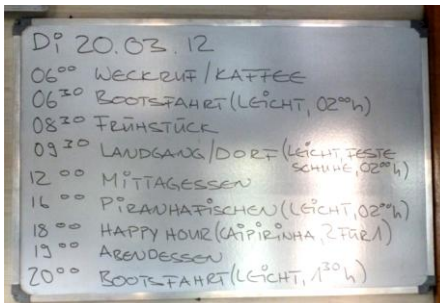 Di 20.03.12
06⁰⁰ WECKRUF/KAFFEE
06³⁰ BOOTSFAHRT (LEiCHT, 02⁰⁰h)
08³⁰ FRÜHSTÜCK
09³⁰ LANDGANG/DORF (LEiCHT, FESTE
SCHUHE, 02⁰⁰h)
12⁰⁰ MiTTAGESSEN
16⁰⁰ PiRANHAFiSCHEN (LEiCHT, 02⁰⁰h)
18⁰⁰ HAPPY HOUR (CAiPiRiNHA, 2 FÜR 1)
19⁰⁰ ABENDESSEN
20⁰⁰ BOOTSFAHRT (LEiCHT, 1³⁰h)